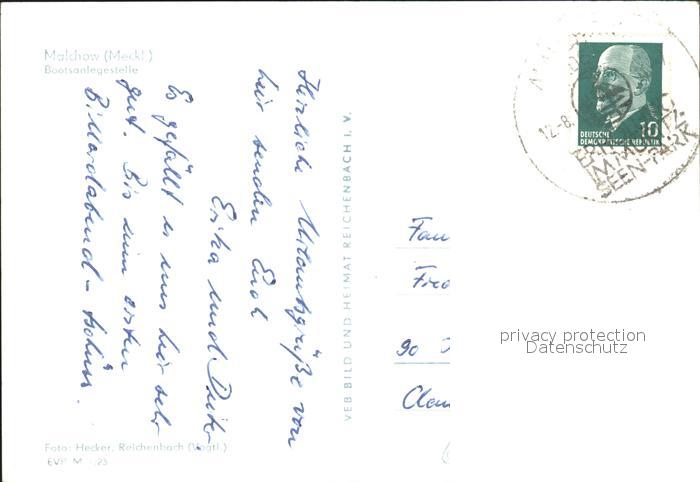 Malchow (Meckl.)
Bootsanlegestelle
Herzliche Urlaubsgrüße von
hier senden Euch
Erika und Dieter
Es gefällt uns hier sehr
gut. Bis zum ersten
Billardabend –
VEB BILD UND HEIMAT REICHENBACH I. V.
Foto: Hecker, Reichenbach (Vogtl.)
DEUTSCHE
DEMOKRATISCHE REPUBLIK
10
12.-8.
IM MÜRITZ-
SEEN-PARK
90
privacy protection
Datenschutz